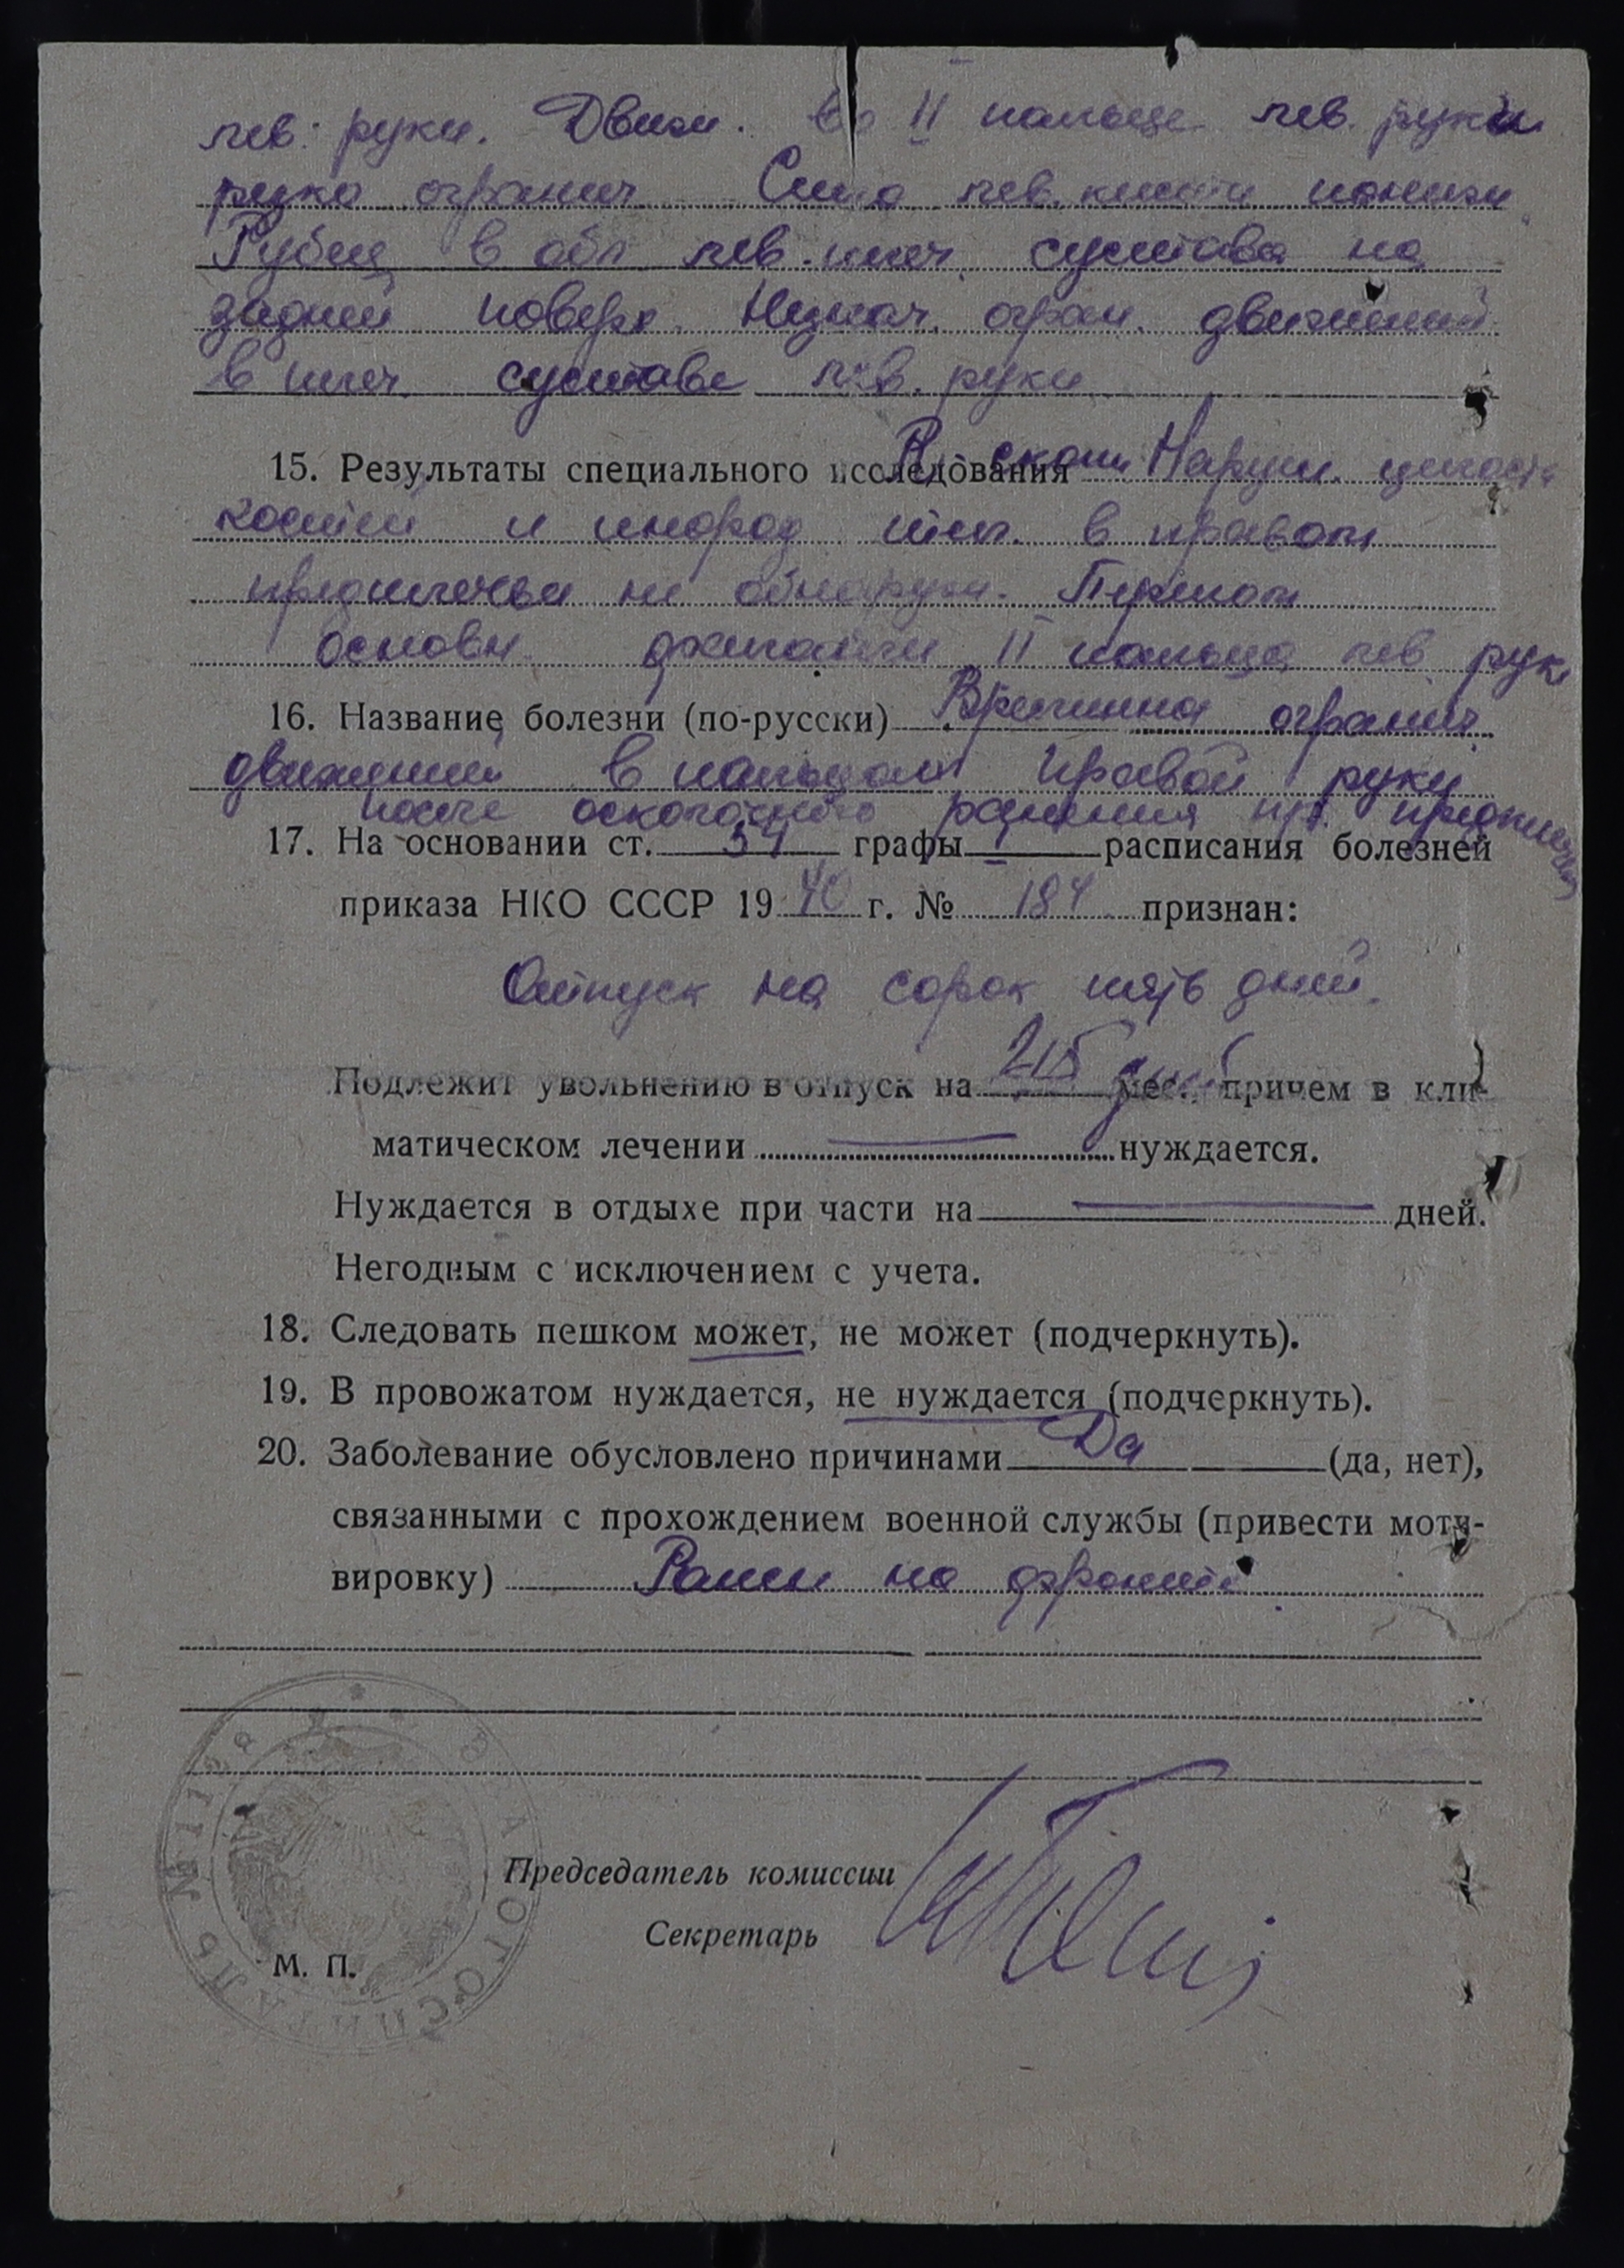 лев. руки. Движ. во II пальце лев. руки
резко огранич. Сила лев. кисти пониж.
Рубец в обл. лев. плеч. сустава на
задней поверх. Незнач. огран. движений
в плеч. суставе лев. руки
15. Результаты специального исследования Наруш. целост.
костей и инород. тел в правом
предплечьи не обнаруж. Перелом
основн. фаланги II пальца лев. руки
16. Название болезни (по-русски) Времинна огранич.
движений в пальцах правой руки
после осколочного ранения пр. предплечья
17. На основании ст. 54 графы I расписания болезней
приказа НКО СССР 1940 г. № 184 признан:
Отпуск на сорок пять дней.
Подлежит увольнению в отпуск на 45 дней мес., причем в кли-
матическом лечении нуждается.
Нуждается в отдыхе при части на дней.
Негодным с исключением с учета.
18. Следовать пешком может, не может (подчеркнуть).
19. В провожатом нуждается, не нуждается (подчеркнуть).
20. Заболевание обусловлено причинами Да (да, нет),
связанными с прохождением военной службы (привести моти-
вировку) Ранен на фронте
Председатель комиссии
Секретарь
М. П.
ГОСПИТАЛЬ №